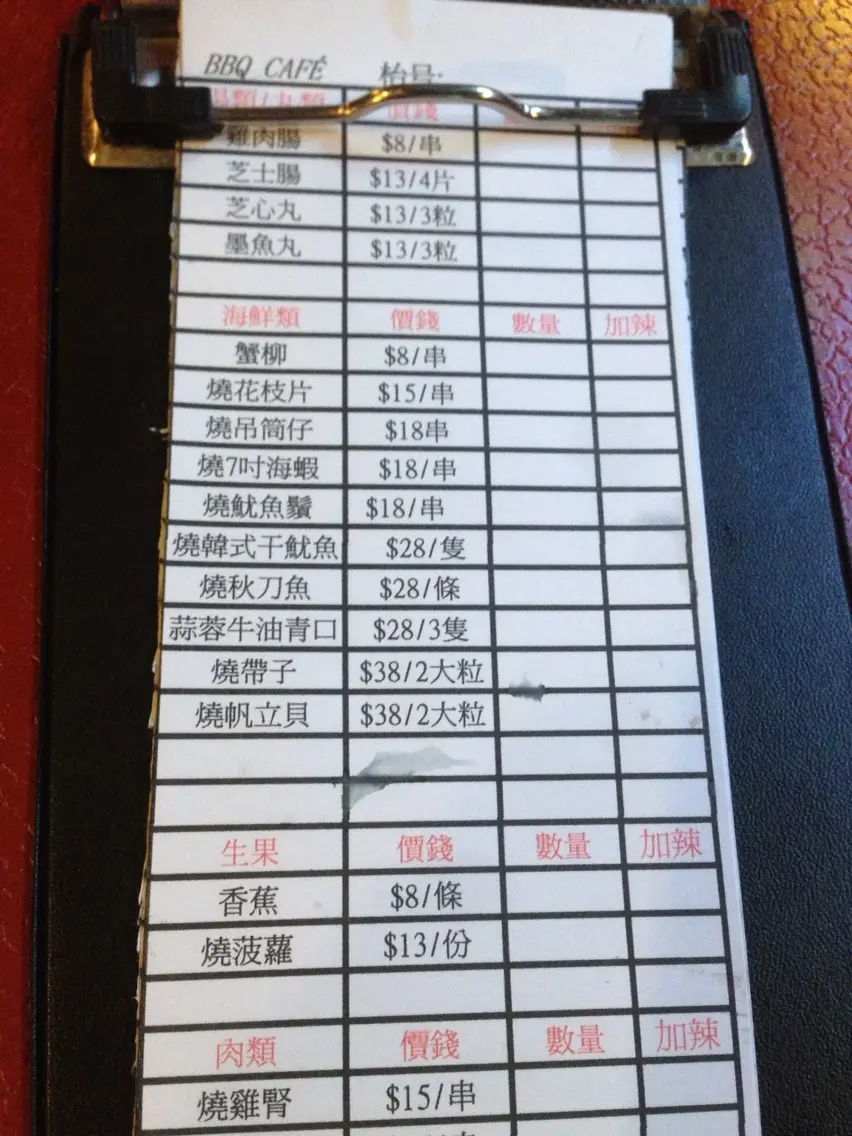 BBQ CAFÉ 枱号:
腸類/丸類 價錢
雞肉腸 $8/串
芝士腸 $13/4片
芝心丸 $13/3粒
墨魚丸 $13/3粒
海鮮類 價錢 數量 加辣
蟹柳 $8/串
燒花枝片 $15/串
燒吊筒仔 $18串
燒7吋海蝦 $18/串
燒魷魚鬚 $18/串
燒韓式干魷魚 $28/隻
燒秋刀魚 $28/條
蒜蓉牛油青口 $28/3隻
燒帶子 $38/2大粒
燒帆立貝 $38/2大粒
生果 價錢 數量 加辣
香蕉 $8/條
燒菠蘿 $13/份
肉類 價錢 數量 加辣
燒雞腎 $15/串